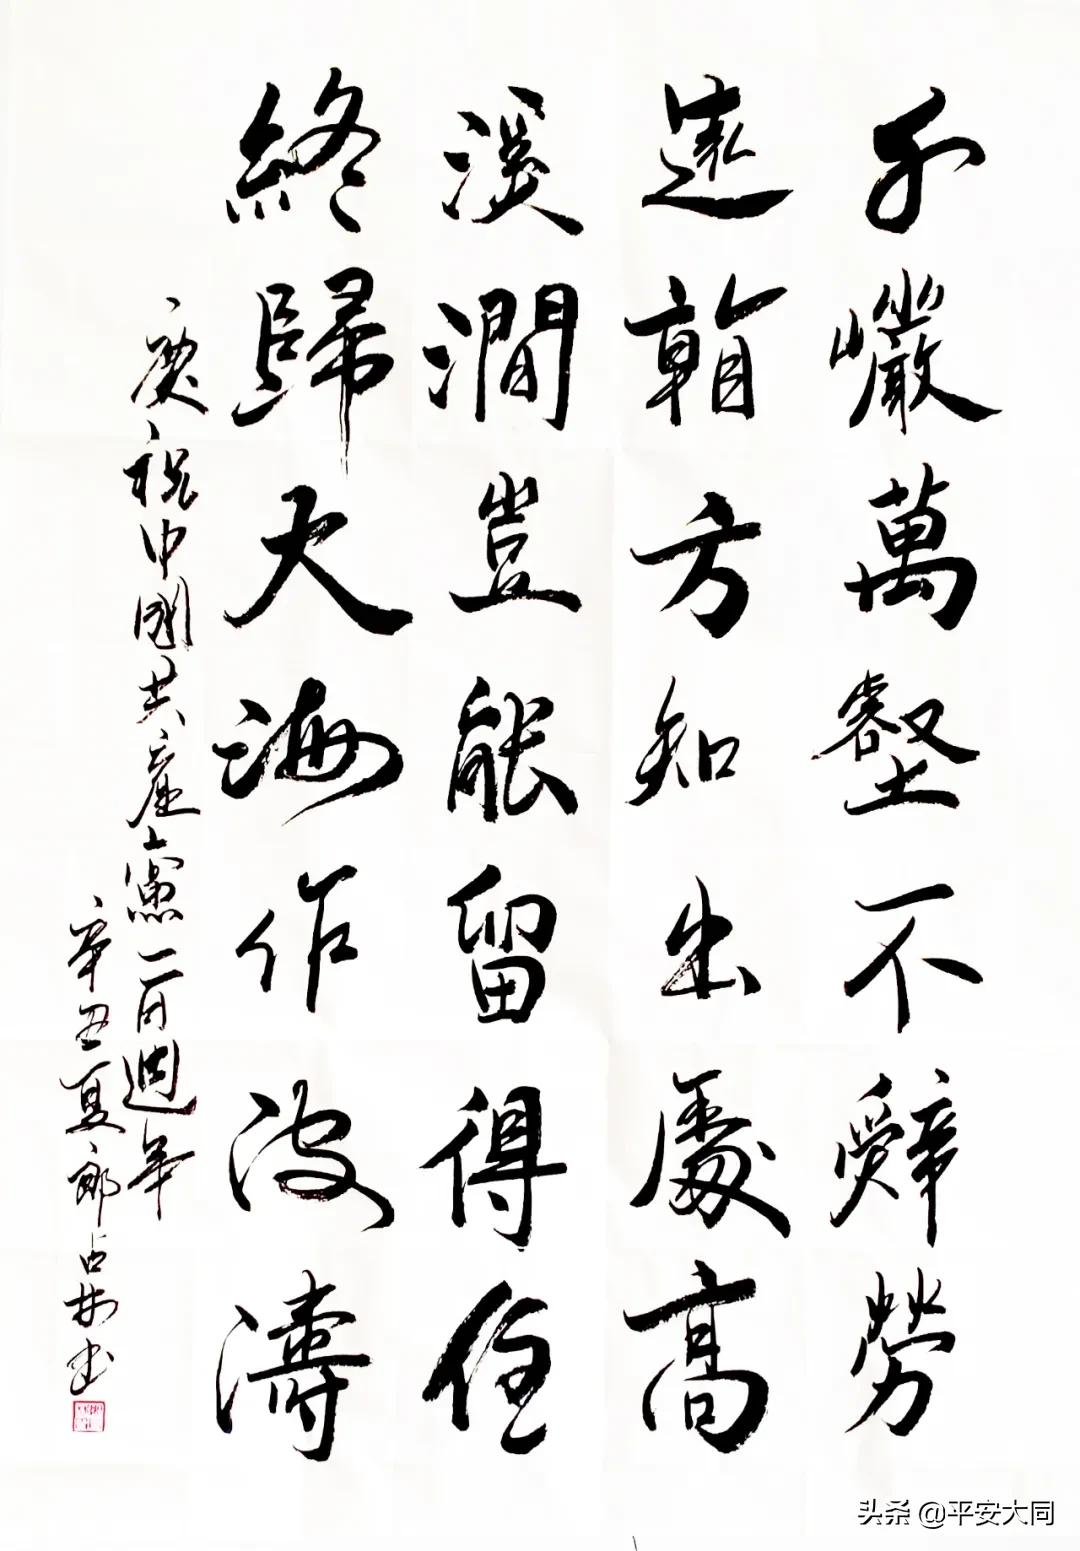 千巖萬壑不辭勞
遠看方知出處高
溪澗豈能留得住
終歸大海作波濤
慶祝中國共產黨一百週年
辛丑夏郎占林书
头条 @平安大同